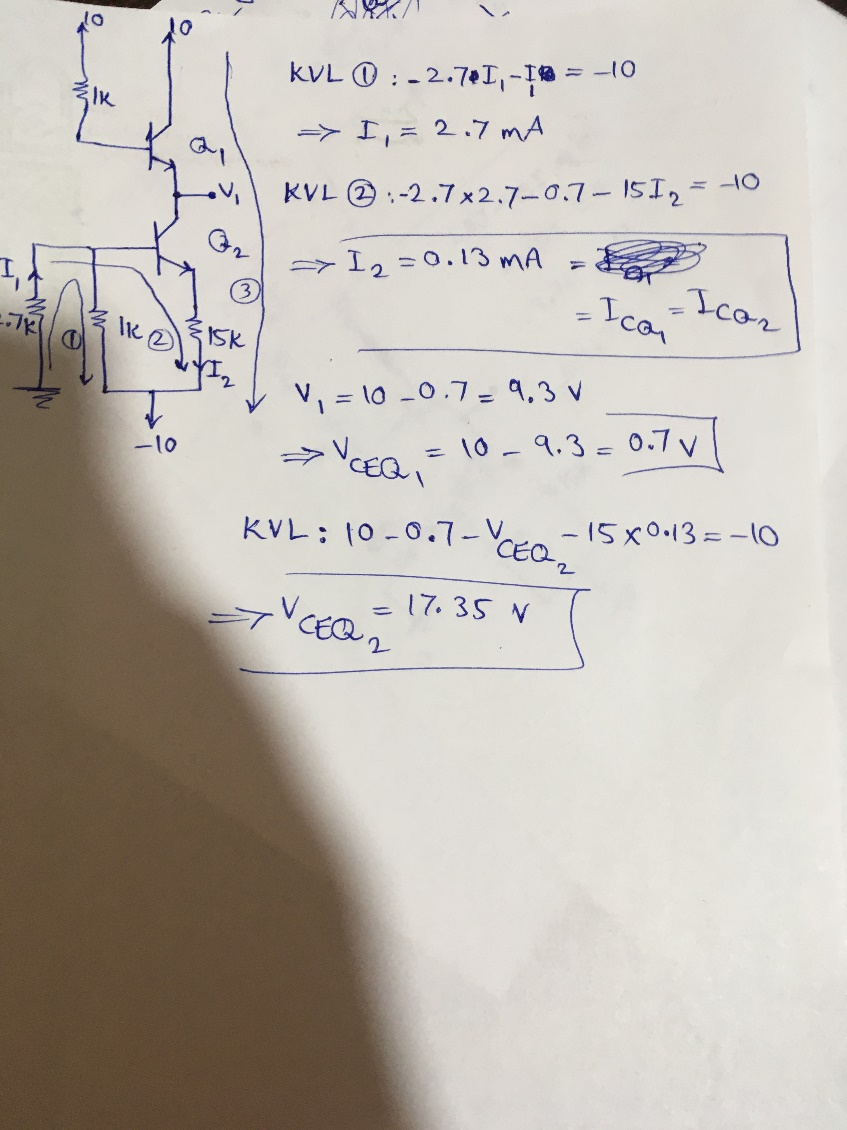 10
10
1K
Q₁
V₁
Q₂
I₁
.7K
①
1K
②
15K
I₂
③
-10
KVL ① : -2.7 I₁ - I₁ = -10
⇒ I₁ = 2.7 mA
KVL ② : -2.7×2.7-0.7-15I₂ = -10
⇒ I₂ = 0.13 mA =
= ICQ₁ = ICQ₂
V₁ = 10 - 0.7 = 9.3 V
⇒ VCEQ₁ = 10 - 9.3 = 0.7 V
KVL : 10 - 0.7 - VCEQ₂ - 15×0.13 = -10
⇒ VCEQ₂ = 17.35 V